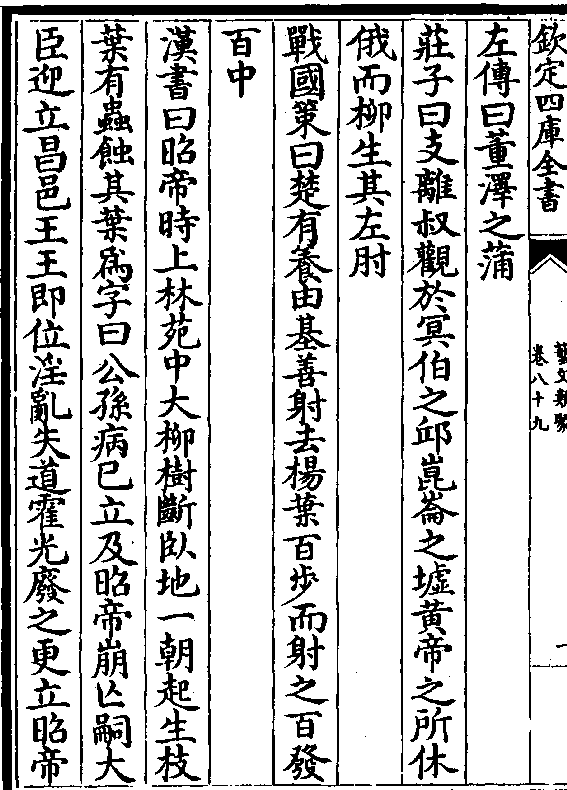 欽定四庫全書
藝文類聚
卷八十九
一
左傳曰董澤之蒲
莊子曰支離叔觀於冥伯之邱崑崙之墟黄帝之所休
俄而柳生其左肘
戰國策曰楚有養由基善射去楊葉百步而射之百發
百中
漢書曰昭帝時上林苑中大柳樹斷卧地一朝起生枝
葉有蟲蝕其葉為字曰公孫病已立及昭帝崩亡嗣大
臣迎立昌邑王王即位淫亂失道霍光廢之更立昭帝